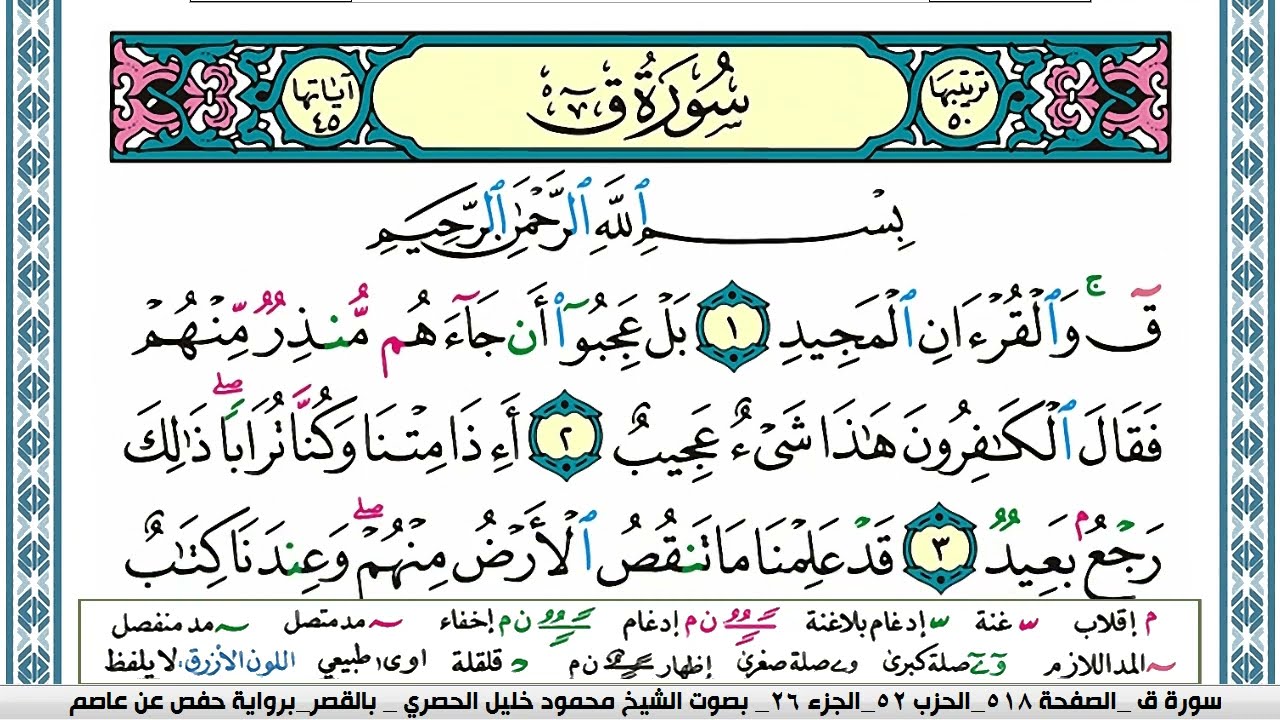 ترتيبها ٥٠ سُورَةُ قٓ آياتها ٤٥
بِسْمِ ٱللَّهِ ٱلرَّحْمَٰنِ ٱلرَّحِيمِ
قٓۚ وَٱلْقُرْءَانِ ٱلْمَجِيدِ ١ بَلْ عَجِبُوٓا۟ أَن جَآءَهُم مُّنذِرٌ مِّنْهُمْ
فَقَالَ ٱلْكَٰفِرُونَ هَٰذَا شَىْءٌ عَجِيبٌ ٢ أَءِذَا مِتْنَا وَكُنَّا تُرَابًاۖ ذَٰلِكَ
رَجْعٌۢ بَعِيدٌ ٣ قَدْ عَلِمْنَا مَا تَنقُصُ ٱلْأَرْضُ مِنْهُمْۖ وَعِندَنَا كِتَٰبٌ
م إقلاب غنة إدغام بلاغنة ن م إدغام ن م إخفاء مد متصل مد منفصل
المد اللازم صلة كبرى صلة صغرى ن م إظهار قلقلة اوى، طبيعي اللون الأزرق، لا يلفظ
سورة ق _الصفحة ٥١٨_الحزب ٥٢_الجزء ٢٦_ بصوت الشيخ محمود خليل الحصري _ بالقصر_برواية حفص عن عاصم